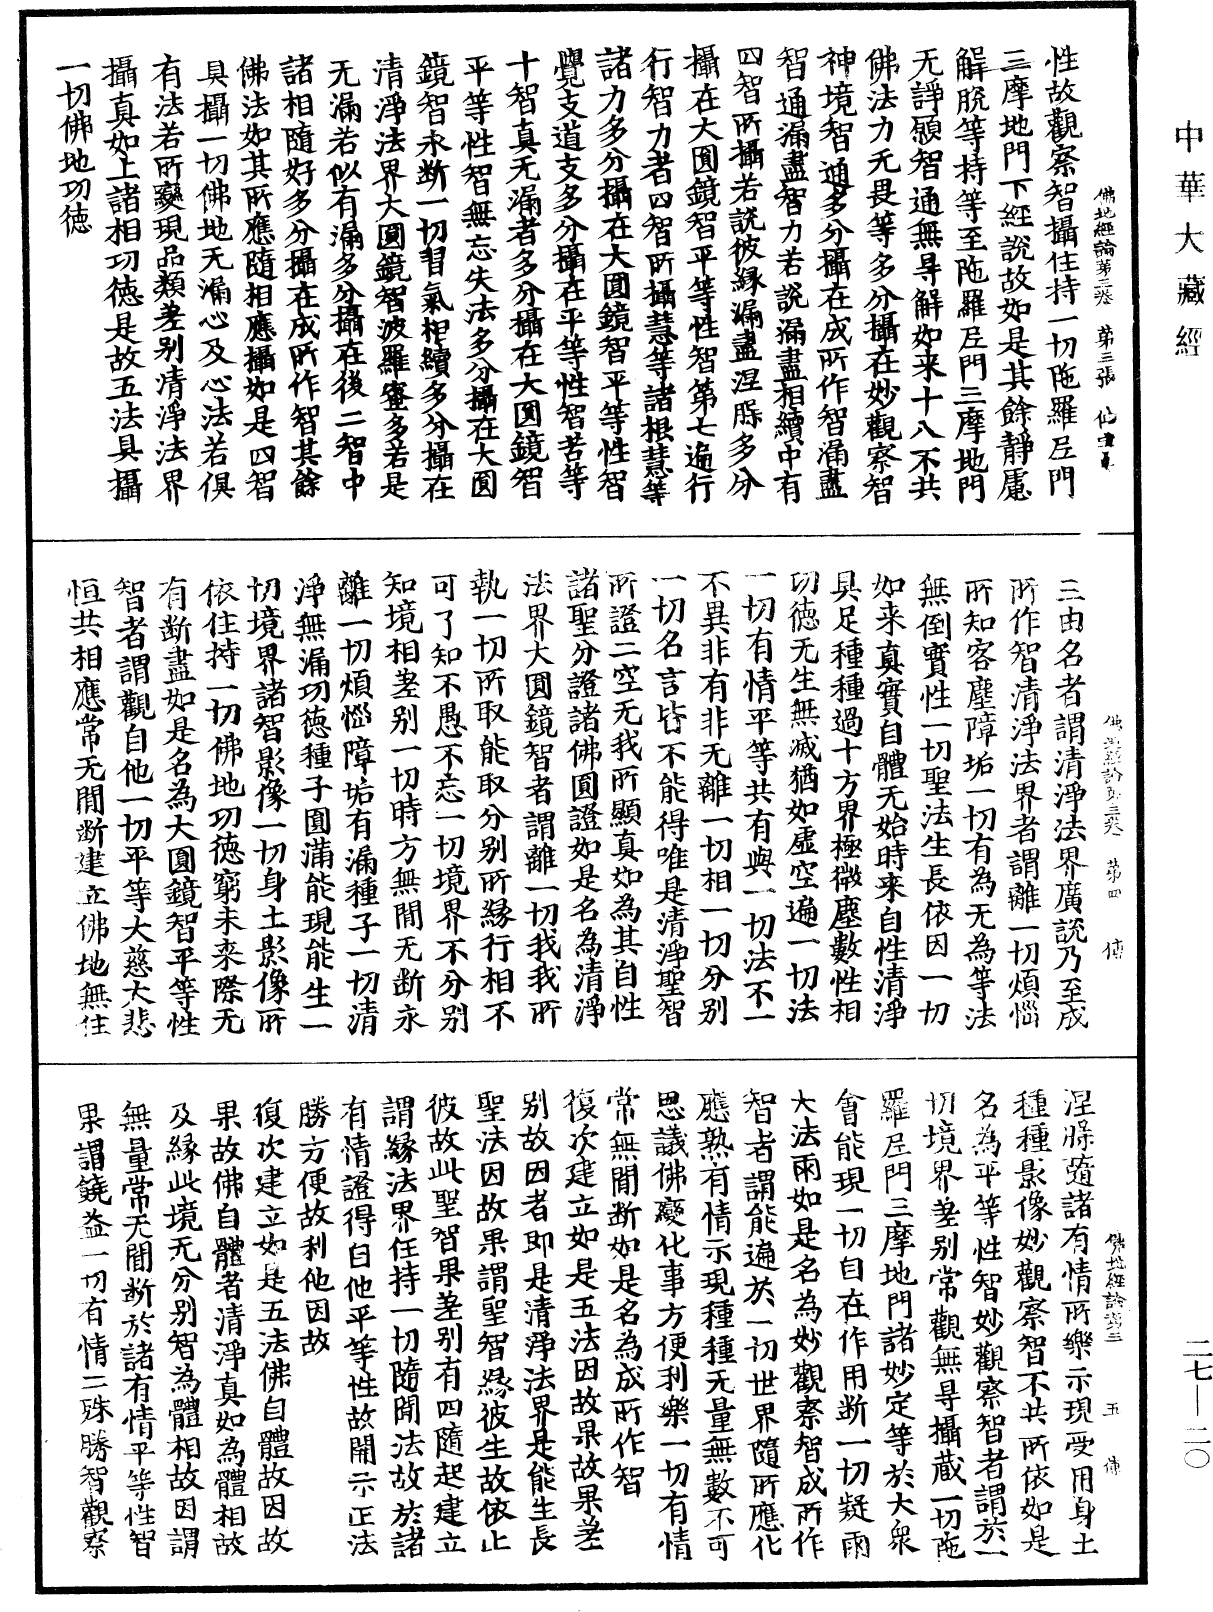 中華大藏經
佛地經論第三卷　第三張
性故觀察智攝住持一切陁羅尼門
三摩地門下經說故如是其餘靜慮
解脫等持等至陁羅尼門三摩地門
无諍願智通無㝵解如来十八不共
佛法力无畏等多分攝在妙觀察智
神境智通多分攝在成所作智漏盡
智通漏盡智力若說漏盡相續中有
四智所攝若說彼緣漏盡涅槃多分
攝在大圓鏡智平等性智第七遍行
行智力者四智所攝慧等諸根慧等
諸力多分攝在大圓鏡智平等性智
覺支道支多分攝在平等性智苦等
十智真无漏者多分攝在大圓鏡智
平等性智無忘失法多分攝在大圓
鏡智永断一切習氣相續多分攝在
清淨法界大圓鏡智波羅蜜多若是
无漏若似有漏多分攝在後二智中
諸相隨好多分攝在成所作智其餘
佛法如其所應隨相應攝如是四智
具攝一切佛地无漏心及心法若俱
有法若所變現品類差別清淨法界
攝真如上諸相功徳是故五法具攝
一切佛地功徳
佛地經論第三卷　第四
三由名者謂清淨法界廣說乃至成
所作智清淨法界者謂離一切煩惱
所知客塵障垢一切有為无為等法
無倒實性一切聖法生長依因一切
如来真實自體无始時来自性清淨
具足種種過十方界極微塵數性相
功徳无生無滅猶如虛空遍一切法
一切有情平等共有與一切法不一
不異非有非无離一切相一切分別
一切名言皆不能得唯是清淨聖智
所證二空无我所顯真如為其自性
諸聖分證諸佛圓證如是名為清淨
法界大圓鏡智者謂離一切我我所
執一切所取能取分別所緣行相不
可了知不愚不忘一切境界不分別
知境相差別一切時方無間无断永
離一切煩惱障垢有漏種子一切清
淨無漏功徳種子圓滿能現能生一
切境界諸智影像一切身土影像所
依住持一切佛地功徳窮未来際无
有断盡如是名為大圓鏡智平等性
智者謂觀自他一切平等大慈大悲
恒共相應常无間断建立佛地無住
佛地經論第三　五
涅槃隨諸有情所樂示現受用身土
種種影像妙觀察智不共所依如是
名為平等性智妙觀察智者謂於一
切境界差別常觀無㝵攝藏一切陁
羅尼門三摩地門諸妙定等於大衆
會能現一切自在作用断一切疑雨
大法雨如是名為妙觀察智成所作
智者謂能遍於一切世界隨所應化
應熟有情示現種種无量無數不可
思議佛變化事方便利樂一切有情
常無間断如是名為成所作智
復次建立如是五法因故果故果差
別故因者即是清淨法界是能生長
聖法因故果謂聖智緣彼生故依止
彼故此聖智果差別有四隨起建立
謂緣法界任持一切隨聞法故於諸
有情證得自他平等性故開示正法
勝方便故利他因故
復次建立如是五法佛自體故因故
果故佛自體者清淨真如為體相故
及緣此境无分別智為體相故因謂
無量常无間断於諸有情平等性智
果謂饒益一切有情二殊勝智觀察
二七—二〇